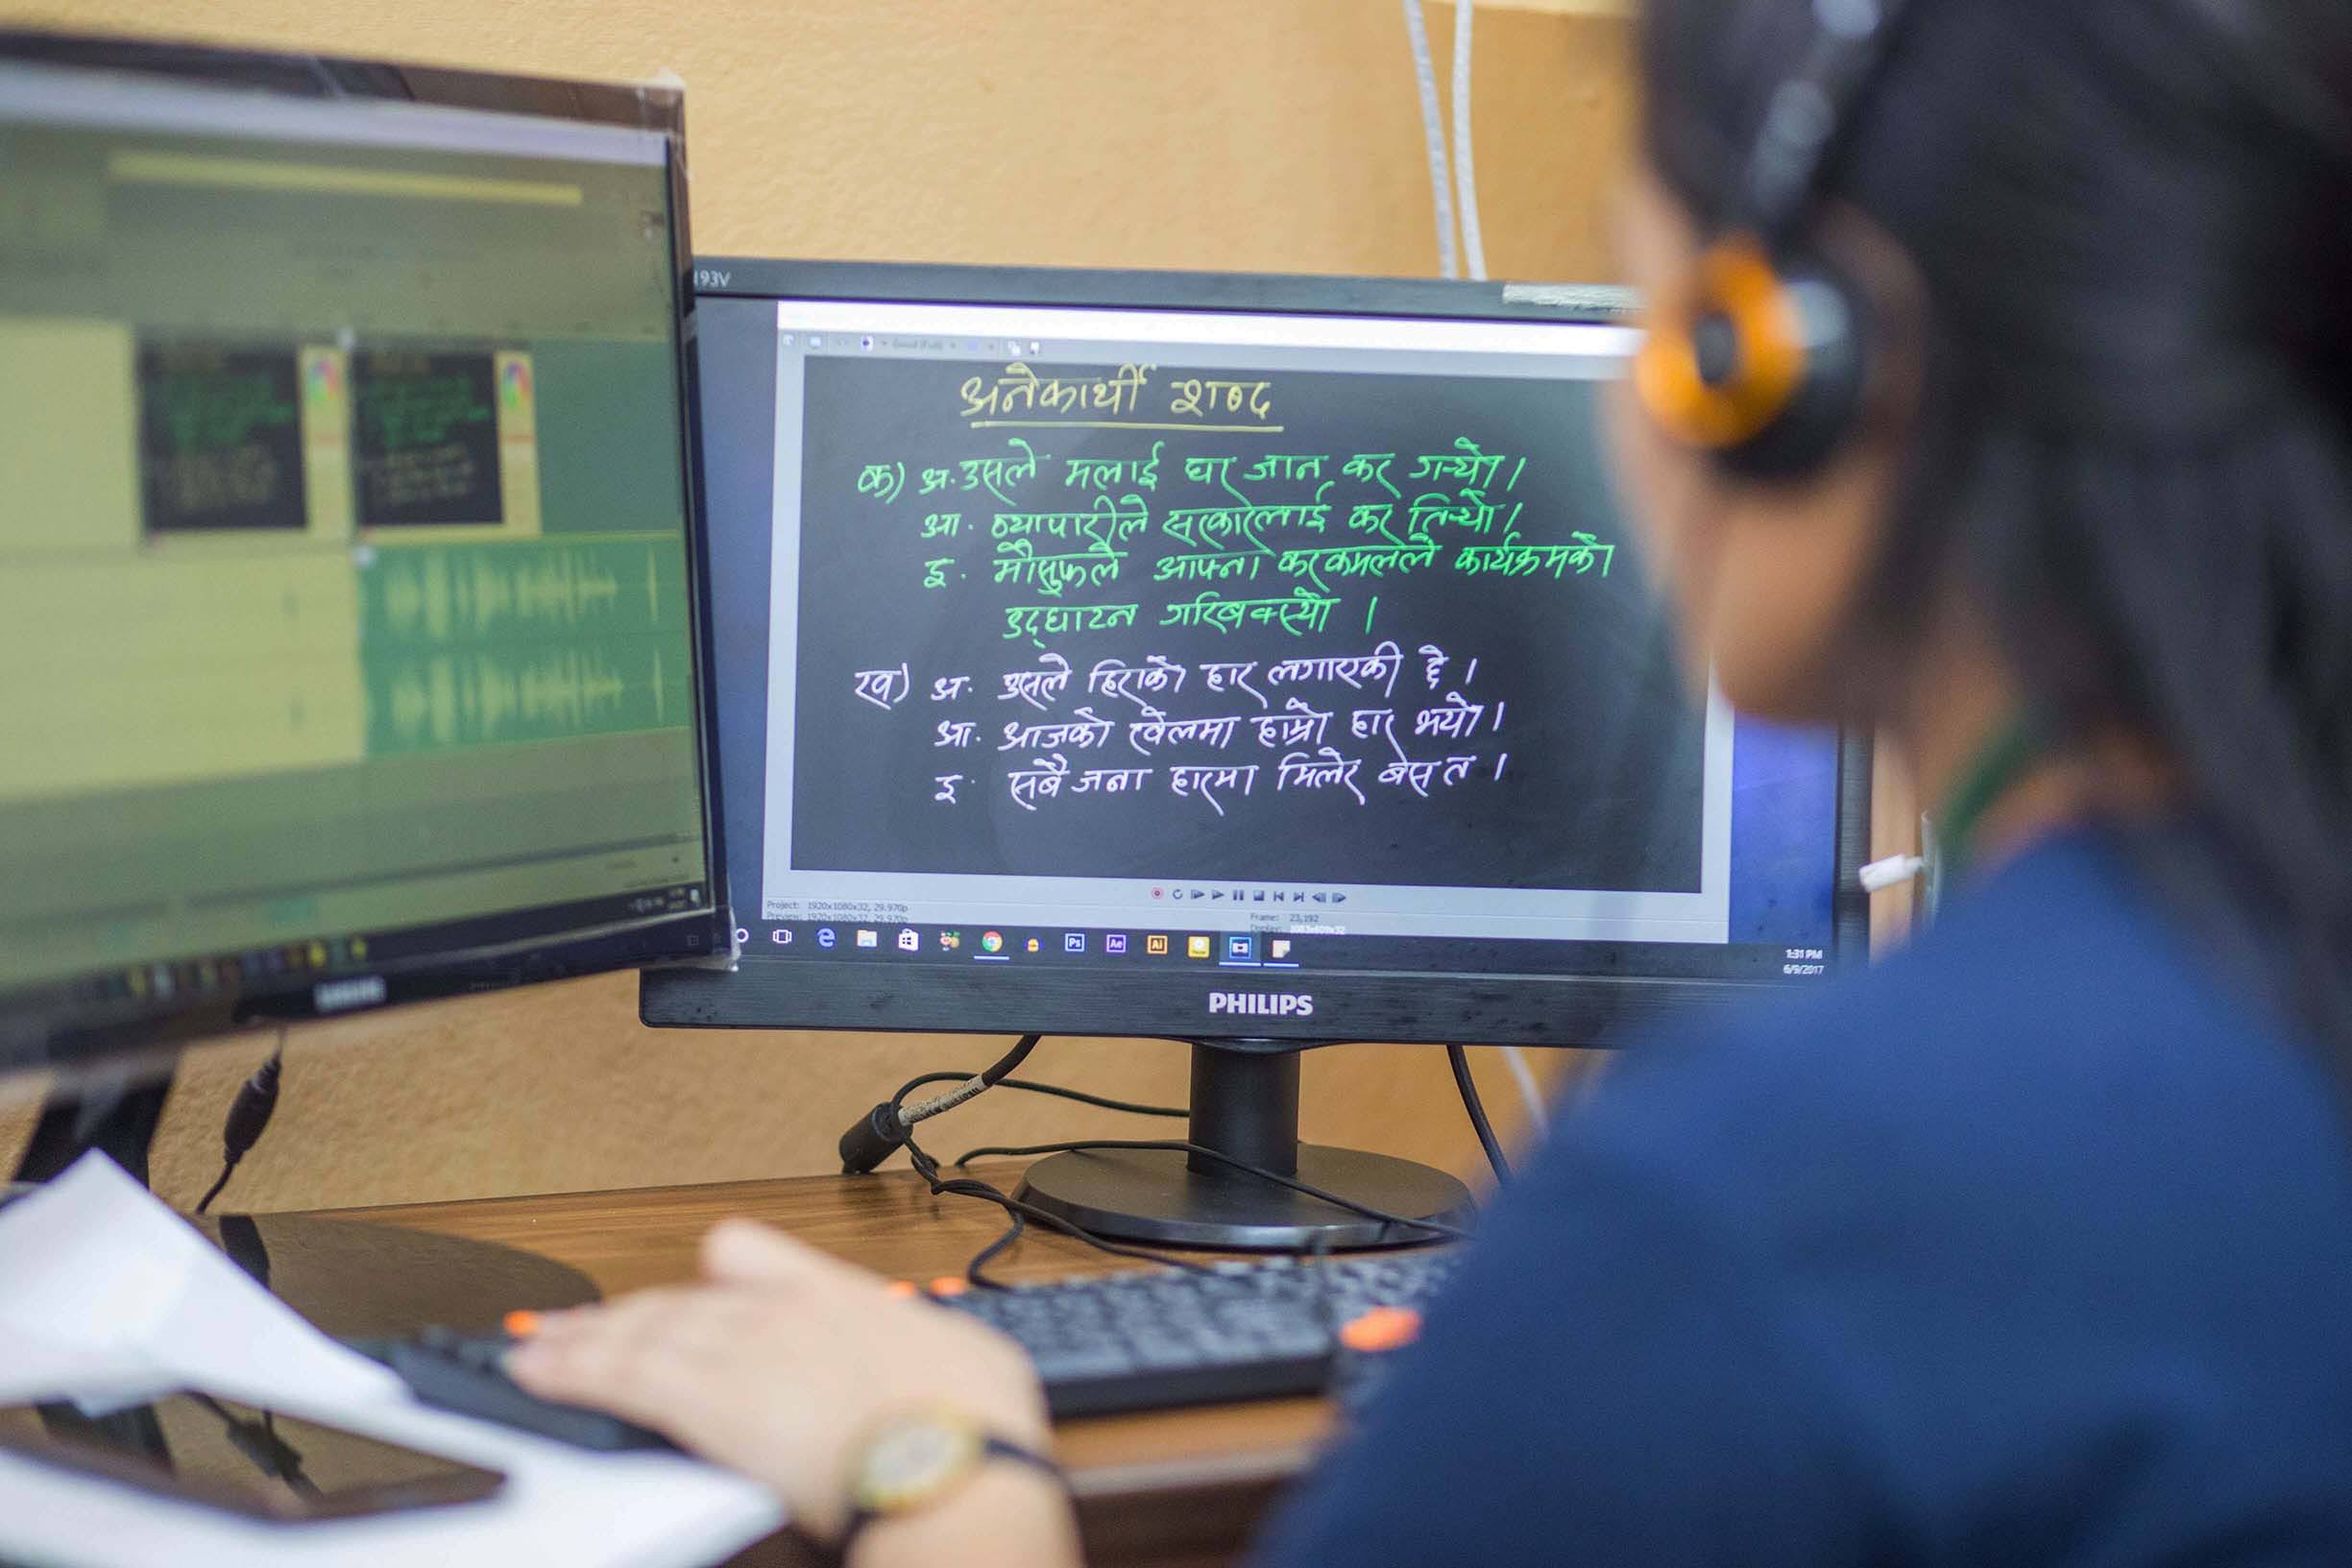 193V
अनेकार्थी शब्द
क) अ. उसले मलाई घर जान कर गर्‍यो।
आ. व्यापारीले सरकारलाई कर तिर्‍यो।
इ. मौसुफले आफ्ना करकमलले कार्यक्रमको
उद्घाटन गरिबक्स्यो ।
ख) अ. उसले हिराको हार लगाएकी छे ।
आ. आजको खेलमा हाम्रो हार भयो।
इ. सबै जना हारमा मिलेर बेस त ।
Project: 1920x1080x32, 29.970p
Preview: 1920x1080x32, 29.970p
Frame: 23,192
Display: 1083x609x32
Ps Ae Ai
1:31 PM
6/9/2017
PHILIPS